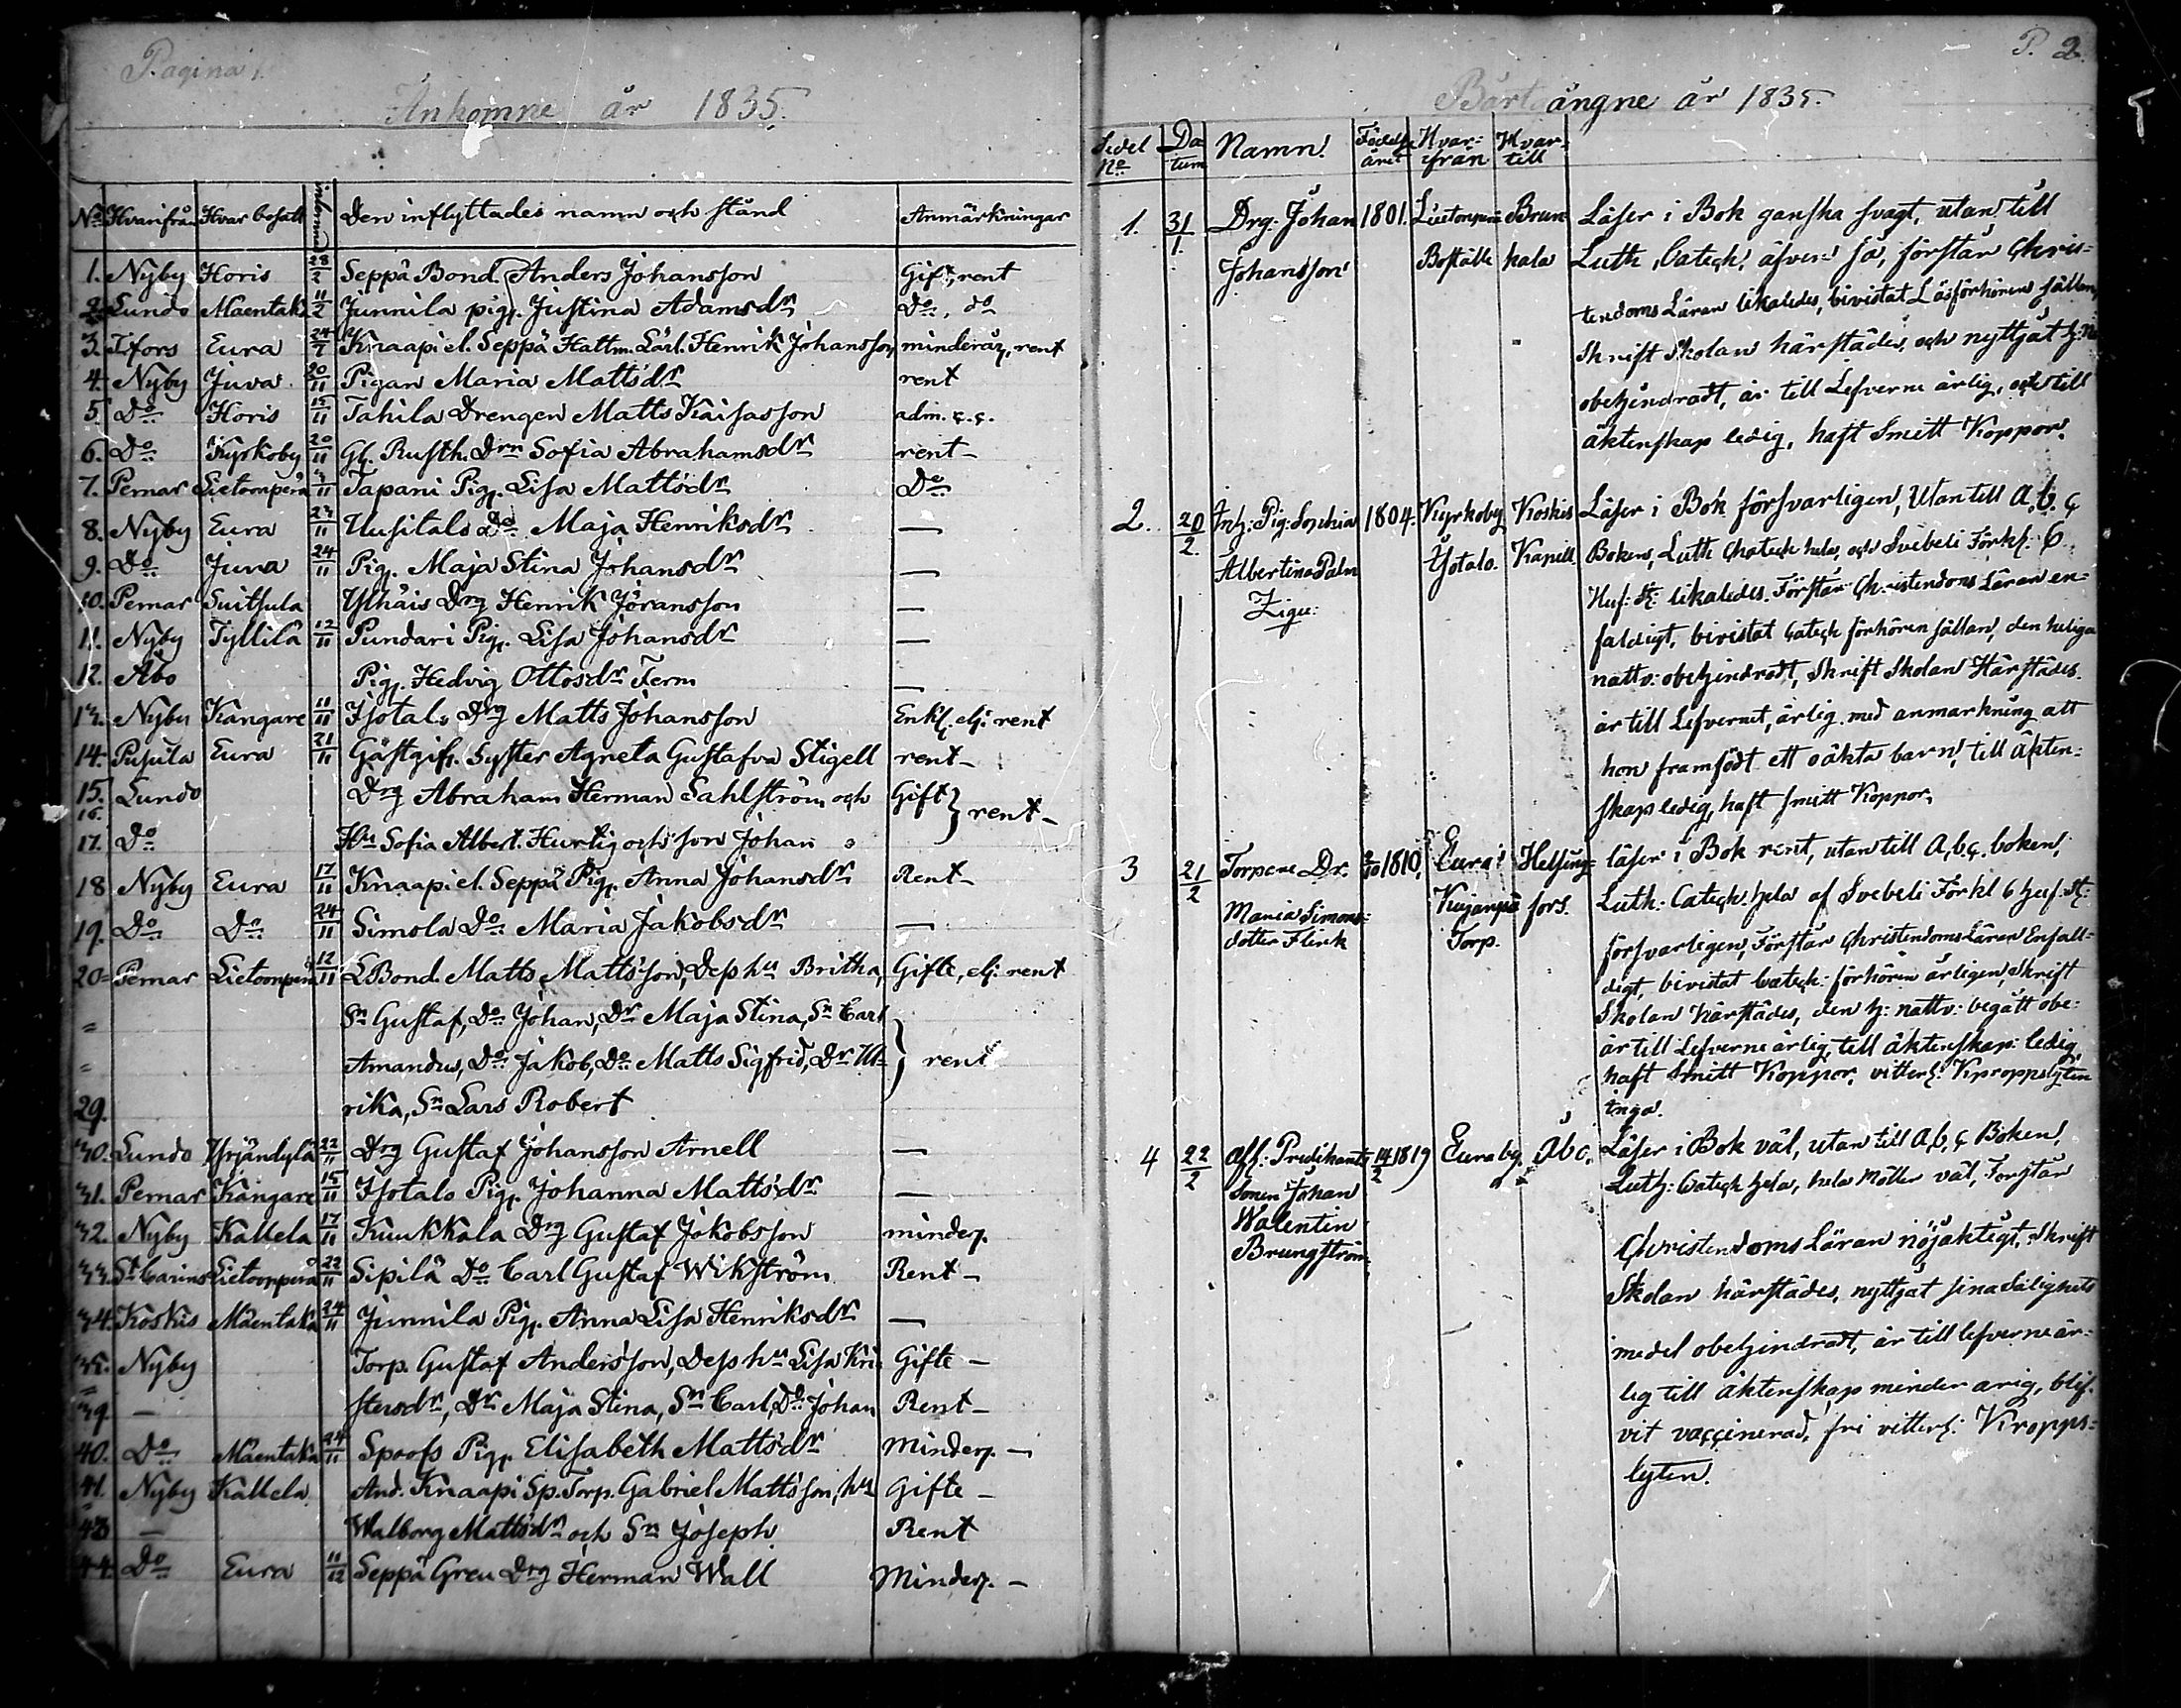 Pagina 1.
Ankomne år 1835.
No Hvarifrån Hvar bosatt Den inflyttades namn och stånd Anmärkningar
1. Nyby Horis 28/2 Seppä Bond. Anders Johansson Gift, rent
2. Lundo Mäentaka 11/2 Junnila pig. Justina Adamsdr Do, do
3. T.fors Eura 24/7 Knaapi el. Seppä Hattm. Lärl. Henrik Johansson minderår, rent
4. Nyby Juva 20/11 Pigan Maria Mattsdr rent
5. Do Horis 15/11 Tahila Drengen Matts Kaisasson adm. c.c.
6. Do Kyrkoby 20/11 Gf. Rusth. Drn Sofia Abrahamsdr rent –
7. Pemar Lietoonperä Tapani Pig. Lisa Mattsdr Do
8. Nyby Eura 23/11 Uusitalo Do Maja Henriksdr —
9. Do Juva 24/11 Pig. Maja Stina Johansdr —
10. Pemar Suitsula Ylhäis Drg Henrik Jöransson —
11. Nyby Tyllilä 12/11 Pundari Pig. Lisa Johansdr —
12. Åbo Pig. Hedvig Ottosdr Ferm —
13. Nyby Kangare 11/11 Isotalo Drg Matts Johansson Enkl. ej: rent
14. Pusula Eura 21/11 Gästgifv. Syster Agneta Gustafva Stigell rent –
15. Lundo Drg Abraham Herman Sahlström och Gift } rent –
16.
17. Do Hu Sofia Albert. Hurtig och son Johan
18 Nyby Eura 17/11 Knaapi el. Seppä Pig. Anna Johansdr Rent –
19. Do Do 24/11 Simola Do Maria Jakobsdr —
20 = Pemar Lietoonperä 12/11 L Bond. Matts Mattsson, Dess hu Britha, Gifte, ej: rent
= Sn Gustaf, Do Johan, Dr Maja Stina, Sn Carl
= Amandus, Do Jakob, Do Matts Sigfrid, Dr Ul= } rent
29. rika, Sn Lars Robert
30. Lundo Yrjänkylä 22/11 Drg Gustaf Johansson Arnell —
31. Pemar Kangare 15/11 Isotalo Pig. Johanna Mattsdr —
32. Nyby Kallela 17/11 Kuukkala Drg Gustaf Jakobsson minderj.
33. St Carins Lietoonperä 22/11 Sipilä Do Carl Gustaf Wikström Rent –
34. Koskis Mäentaka 24/11 Junnila Pig. Anna Lisa Henriksdr —
35. Nyby Torp. Gustaf Andersson, Dess hu Lisa Kri Gifte –
39. — stersdr, Dr Maja Stina, Sn Carl, Do Johan Rent –
40. Do Mäentaka 24/11 Spoofs Pig. Elisabeth Mattsdr Minderj. –
41. Nyby Kallela And. Knaapi Sp. Torp. Gabriel Mattsson, hu Gifte –
43 — Walborg Mattsdr och Sn Joseph. Rent
44. Do Eura 11/12 Seppä Gren Drg Herman Wall Minderj. –
P. 2.
Bårtgångne år 1835.
Sedel No Datum Namn. Födelse året Hvar= ifrån Hvar= till
1. 31/1. Drg: Johan 1801. Lietonperä Brun Läser i Bok ganska svagt, utan till
Johansson Boställe kala Luth. Catech. äfven så, förstår Chris=
tendoms Läran likaledes, bivistat Läsförhören sällan,
Skrift Skolan härstädes, och nyttjat H. N.
obehindradt, är till Lefverne ärlig, och till
äktenskap ledig, haft Smitt Koppor.
2. 20/2. Inh: Pig: Sophia 1804. Kyrkoby Koskis Läser i Bok försvarligen, Utan till A, b, c
Albertina Palm Isotalo. Kapell. Boken, Luth Chatech hela, och Svebeli Förkl: 6
Huf: St: likaledes. Förstår Christendoms Läran en=
faldigt, bivistat Catech förhören sällan, den heliga
nattv: obehindradt, Skrift Skolan Härstädes.
är till Lefvernet, ärlig med anmarkning att
hon framfödt ett oäkta barn, till äkten=
skap ledig, haft smitt Koppor.
3 21/2 Torpare Dr. 1810, Eura Helsing= läser i Bok rent, utan till A, b, c. boken,
Maria Simons= Kujanpää fors. Luth: Catech. hela af Svebeli Förkl 6 huf. St:
dotter Flink Torp. försvarligen, Förstår Christendoms Läran Enfall=
digt, bivistat Catech: förhören årligen, Skrift
Skolan härstädes, den h: nattv: begått obe:
är till Lefverne ärlig, till äktenskap ledig,
haft Smitt Koppor, vitterl: Kroppslyten
inga.
4 22/2 Afl: Predikants 14/2 1819 Eura by. Åbo. Läser i Bok väl, utan till A, b, c Boken,
Sonen Johan Luth: Catech hela, hela Möller väl, Forstår
Walentin Christendoms Läran nöjaktigt, Skrift
Brungström Skolan härstädes, nyttjat sina Salighets
medel obehindradt, är till lefverne är=
lig till äktenskap minder arig, blif=
vit vaccinerad, fri vitterl: Kropps=
lyten.